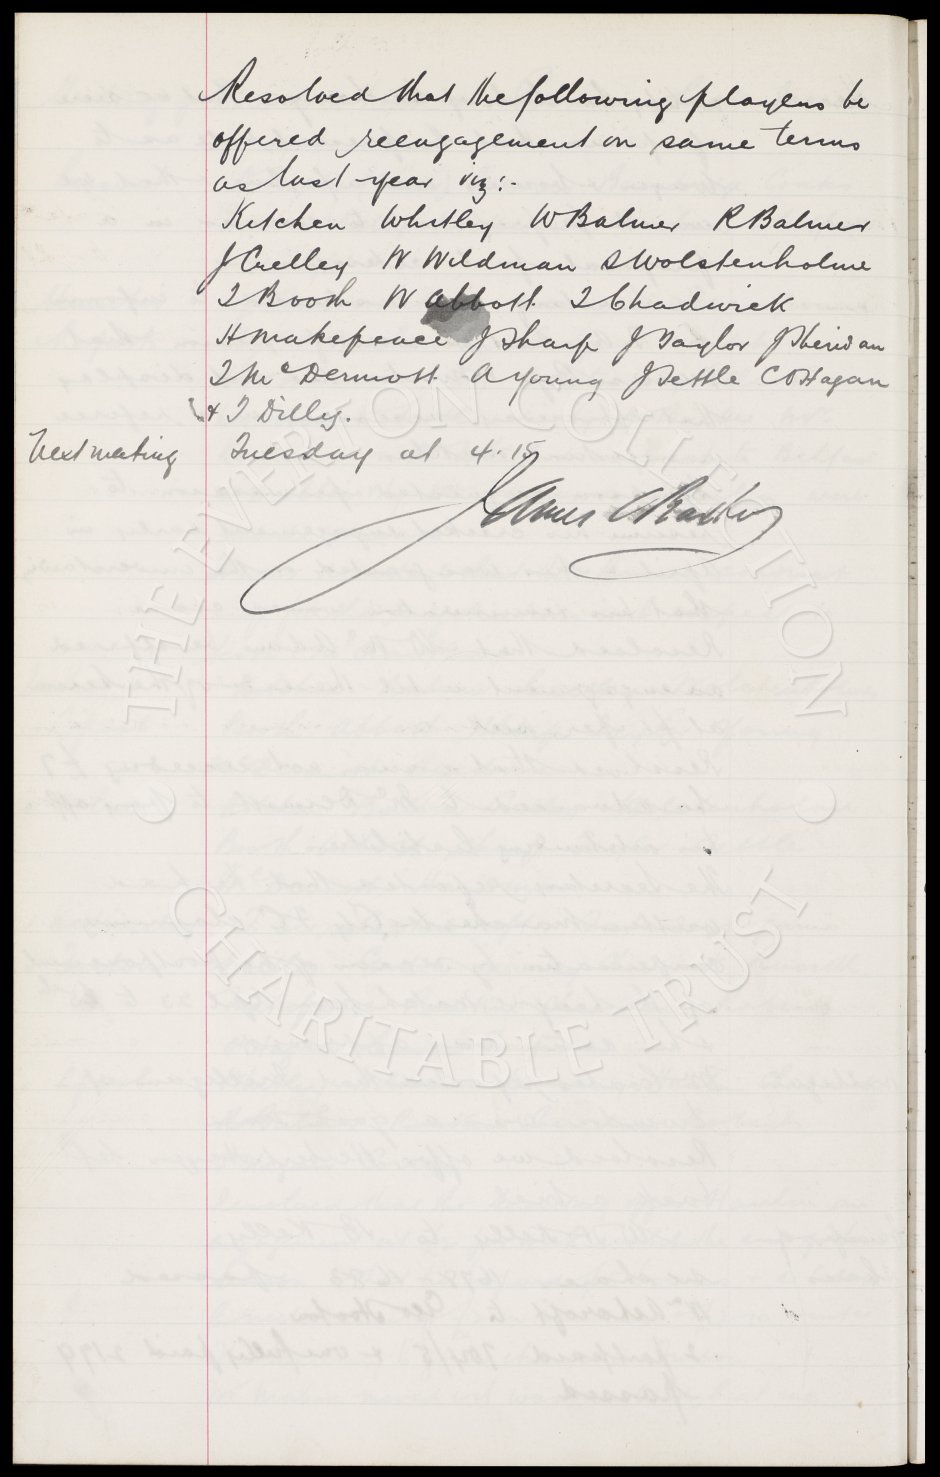 Resolved that the following players be
offered reengagement on same terms
as last year viz:-
Kitchen Whitley W Balmer R Balmer
J Crelley W Wildman S Wolstenholme
T Booth W Abbott T Chadwick
H Makepeace J Sharp J Taylor J Sheridan
T McDermott A Young J Settle C O'Hagan
& T Dilly.
Next meeting Tuesday at 4.15
James C Baxter
THE EVERTON COLLECTION
CHARITABLE TRUST